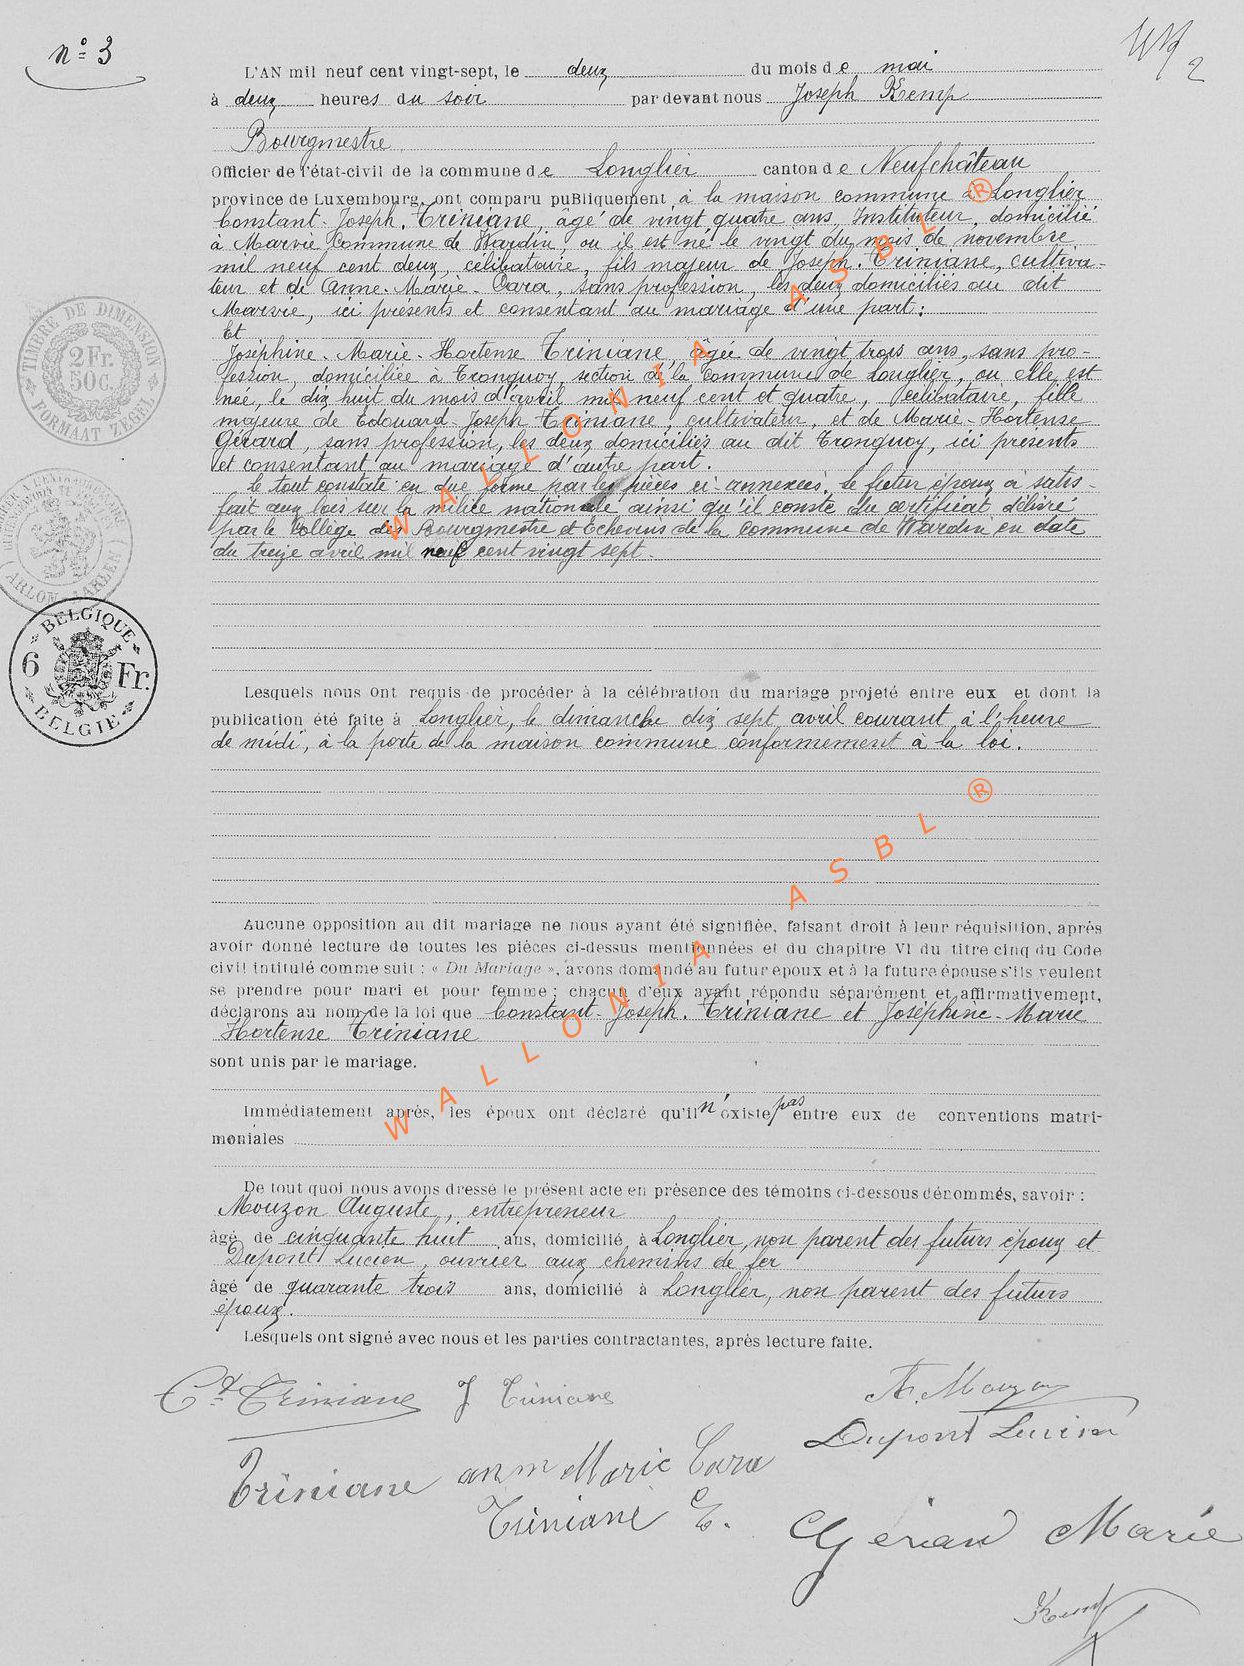 n° 3
L'AN mil neuf cent vingt-sept, le deux du mois de mai
à deux heures du soir par devant nous Joseph Kemp
Bourgmestre
Officier de l'état-civil de la commune de Longlier canton de Neufchâteau
province de Luxembourg, ont comparu publiquement à la maison commune à Longlier
Constant-Joseph. Triniane, âgé de vingt quatre ans, Instituteur, domicilié
à Marvie Commune de Wardin ou il est né le vingt du mois de novembre
mil neuf cent deux, célibataire, fils majeur de Joseph. Triniane, cultiva-
teur et de Anne-Marie-Cara, sans profession, les deux domiciliés au dit
Marvie, ici présents et consentant au mariage d'une part:
Et
Joséphine-Marie-Hortense Triniane, âgée de vingt trois ans, sans pro-
fession, domiciliée à Tronquoy, section de la Commune de Longlier, ou elle est
née, le dix huit du mois d'avril mil neuf cent et quatre, célibataire, fille
majeure de Edouard-Joseph Triniane, cultivateur, et de Marie-Hortense
Gérard, sans profession, les deux domiciliés au dit Tronquoy, ici présents
et consentant au mariage d'autre part.
le tout constaté en due forme par les pièces ci-annexées. le futur époux a satis-
fait aux lois sur la milice nationale ainsi qu'il conste du certificat délivré
par le Collège des Bourgmestre et Echevins de la commune de Wardin en date
du treize avril mil neuf cent vingt sept.
TIMBRE DE DIMENSION
2 Fr. 50c.
FORMAAT ZEGEL
ARLON AARLEN
BELGIQUE
6 Fr.
BELGIE
Lesquels nous ont requis de procéder à la célébration du mariage projeté entre eux et dont la
publication été faite à Longlier, le dimanche dix sept avril courant à l'heure
de midi, à la porte de la maison commune conformément à la loi.
Aucune opposition au dit mariage ne nous ayant été signifiée, faisant droit à leur réquisition, après
avoir donné lecture de toutes les pièces ci-dessus mentionnées et du chapitre VI du titre cinq du Code
civil intitulé comme suit : « Du Mariage », avons demandé au futur epoux et à la future épouse s'ils veulent
se prendre pour mari et pour femme ; chacun d'eux ayant répondu séparément et affirmativement,
déclarons au nom de la loi que Constant-Joseph. Triniane et Joséphine-Marie
Hortense Triniane
sont unis par le mariage.
Immédiatement après, les époux ont déclaré qu'il n'existe pas entre eux de conventions matri-
moniales
De tout quoi nous avons dressé le présent acte en présence des témoins ci-dessous dénommés, savoir :
Mouzon Auguste, entrepreneur
âgé de cinquante huit ans, domicilié à Longlier, non parent des futurs époux et
Dupont Lucien, ouvrier aux chemins de fer
âgé de quarante trois ans, domicilié à Longlier, non parent des futurs
époux.
Lesquels ont signé avec nous et les parties contractantes, après lecture faite.
Ct Triniane J Triniane A. Mouzon
Dupont Lucien
Triniane Marie Cara
Triniane E.
Gérard Marie
Kemp
WALLONIA ASBL ®
WALLONIA ASBL ®